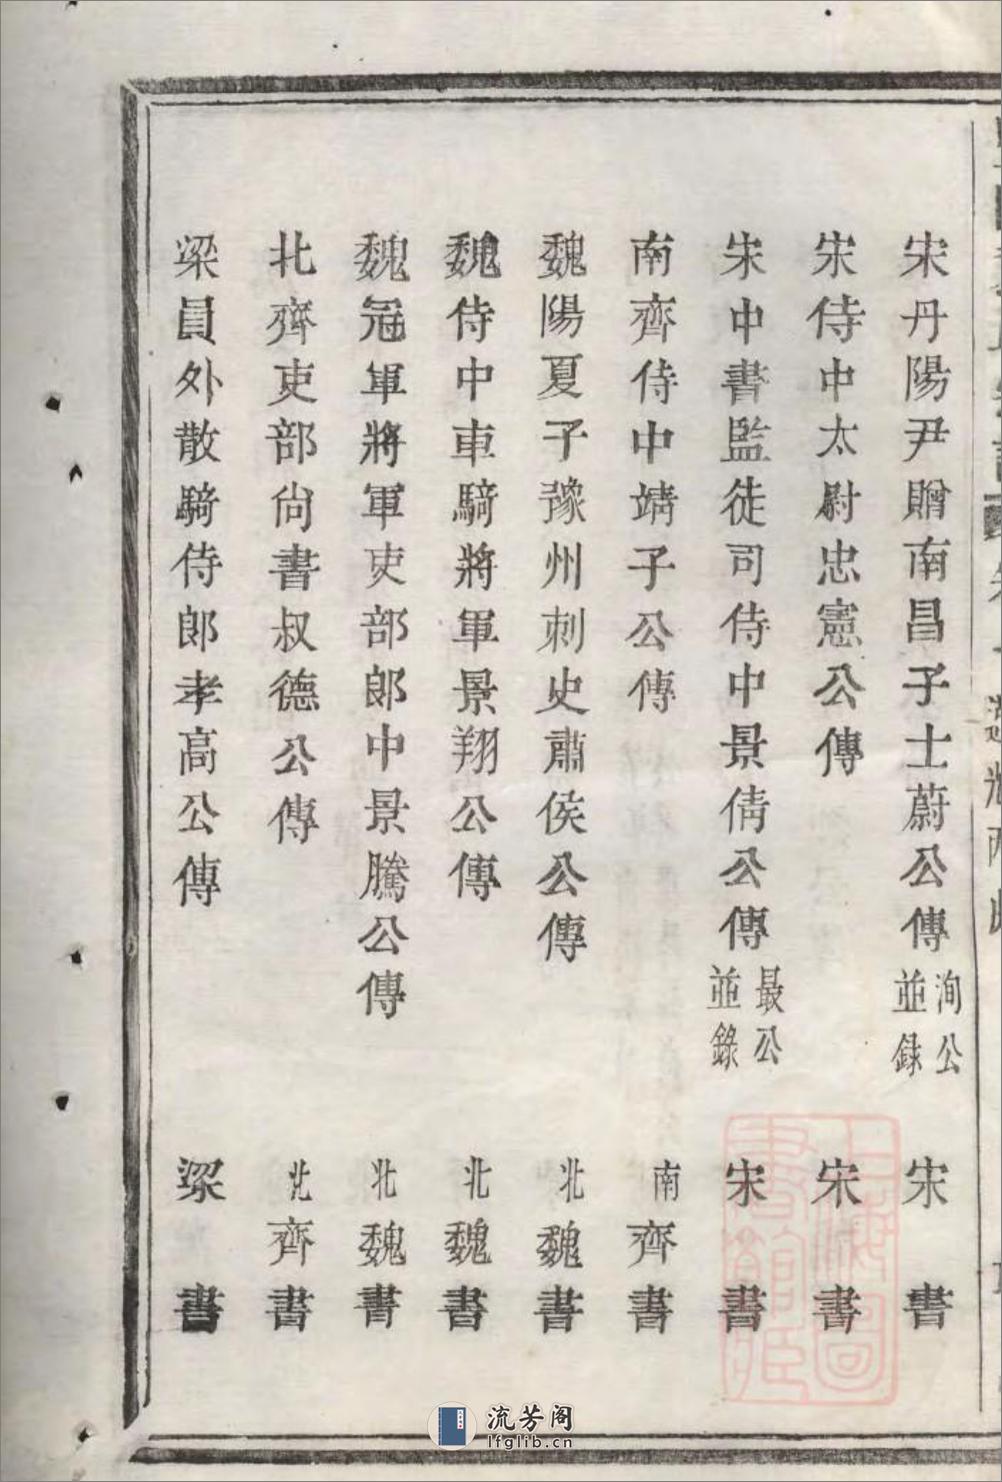 宋丹陽尹贈南昌子士蔚公傳 洵公並録 宋書
宋侍中太尉忠憲公傳 宋書
宋中書監徒司侍中景倩公傳 最公並錄 宋書
南齊侍中靖子公傳 南齊書
魏陽夏子豫州刺史肅侯公傳 北魏書
魏侍中車騎將軍景翔公傳 北魏書
魏冠軍將軍吏部郎中景騰公傳 北魏書
北齊吏部尙書叔德公傳 北齊書
梁員外散騎侍郎孝高公傳 梁書
上海圖書館藏
流芳阁
lfglib.cn